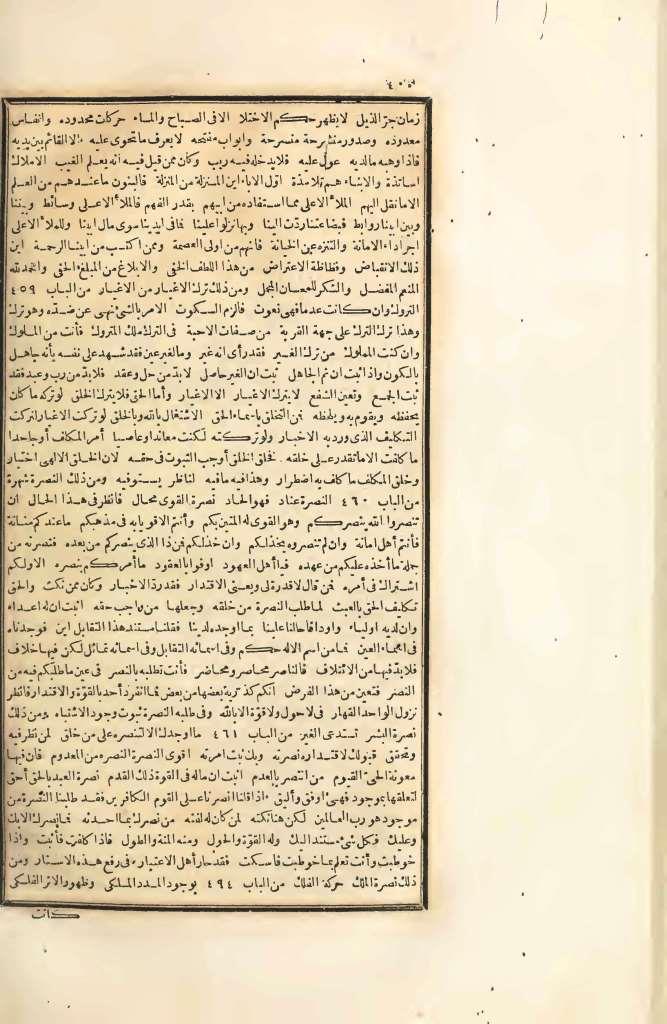 ٤٠٥
زمان جرّ الذيل لا يظهر حكم الاختلا الا فى الصباح والمساء حركات محدوده وانفاس
معدوده وصدور منشرحة منسرحة وابواب منفتحه لا يعرف ما تحوى عليه الا القائم بين يديه
فاذا وهبه مالديه عوّل عليه فلا يدخله فيه ريب وكان ممن قيل فيه انه يعلم الغيب الاملاك
اساتذة والانبياء هم تلامذة اوّل الاباء اين المنزلة من المنزلة فالبنون ما عندهم من العلم
الا ما نقل اليهم الملأ الاعلى مما استفاده من ابيهم بقدر الفهم فالملأ الاعلى وسائط وبيننا
وبين ابينا روابط فبضاعتنا ردّت الينا وبها نزلوا علينا فما فى ايدينا سوى مال ابينا وللملأ الاعلى
اجر أداء الامانة والتنزه عن الخيانة فانهم من اولى العصمة وممن اكتسب من ابينا الرحمة اين
ذلك الانقباض وفظاظة الاعتراض من هذا اللطف الخفى والابلاغ من المبلغ الحق والحمد لله
المنعم المفضل والشكر للمحسان المجمل ومن ذلك ترك الاغيار من الاغيار من الباب ٤٥٩
التروك وان كانت عدما فهى نعوت فالزم السكوت الامر بالشئ نهى عن ضدّه وهو ترك
وهذا ترك الترك على جهة القربة من صفات الاحبة فى الترك ملك المتروك فأنت من الملوك
وان كنت المملوك من ترك الغير فقد رأى انه غير وما الغير عين فقد شهد على نفسه بأنه جاهل
بالكون واذا ثبت ان ثم الجاهل ثبت ان الغير حاصل لا بدّ من حل وعقد فلا بدّ من رب وعبد فقد
ثبت الجمع وتعين الشفع لا يترك الاغيار الا الاغيار وأما الحق فلا يترك الخلق لو تركه ما كان
يحفظه ويقوم به ويلحظه من التخلق بأسماء الحق الاشتغال بالله وبالخلق لو تركت الاغيار لتركت
التكليف الذى ورد به الاخبار ولو تركته لكنت معاندا وعاصيا أمر المكلف أو جاحدا
ما كلفت الا ما تقدر على خلقه فخلق الخلق أوجب الثبوت فى حقه لان الخلق الالهى اختيار
وخلق المكلف ما كلف به اضطرار وهذا فيه ما فيه لناظر يستوفيه ومن ذلك النصرة شهرة
من الباب ٤٦٠ النصرة عناد فهو الحاد نصرة القوى محال فانظر فى هذا الحال ان
تنصروا الله ينصركم وهو القوى له المتين بكم وأنتم الاقوياء به فى مذهبكم ما عندكم متانة
فأنتم أهل امانة وان لم تنصروه يخذلكم وان خذلكم فمن ذا الذى ينصركم من بعده فنصرته من
جملة ما أخذه عليكم من عهده فيا أهل العهود اوفوا بالعقود ما أمركم بنصره الا ولكم
اشتراك فى أمره فمن قال لا قدرة لى ويعنى الاقتدار فقد ردّ الاخبار وكان ممن نكث والحق
تكليف الحق بالعبث لما طلب النصرة من خلقه وجعلها من واجب حقه اثبت ان له اعداء
وان لديه اولياء واودّاء فأحالنا علينا بما اوجده لدينا فقلنا مستند هذا التقابل اين فوجدناه
فى اسماء العين فما من اسم الا له حكم وفى اسمائه التقابل وفى اسمائه تماثل لكن فيها خلاف
فلا بدّ فيها من الائتلاف فالناصر محاصر ومحاضر فأنت تطلبه بالنصر فى عين ما طلبكم فيه من
النصر فتعين من هذا الفرض انكم كذرّية بعضها من بعض فما انفرد أحد بالقوّة والاقتدار فانظر
نزول الواحد القهار فى لا حول ولا قوّة الا بالله وفى طلبه النصرة ثبوت وجود الاشباه ومن ذلك
نصرة البشر تستدعى الغير من الباب ٤٦١ ما اوجدك الا لنصره على من خلق لمن نظر فيه
وتحقق قبولك لاقتداره نصرته وبك ثبت امرته اقوى النصرة النصره من المعدوم فان فيها
معونة الحىّ القيوم من انتصر بالعدم اثبت ان ماله فى القوة ذلك القدم نصرة العبد بالحق أحق
لتعلقها بموجود فهى اوفق وأليق اذا قلنا انصرنا على القوم الكافرين فقد طلبنا النصرة من
موجود هو رب العالمين لكن هنا نكته لمن كان له لفته من نصرك بما احدثه فما نصرك الا بك
وعليك فبكل شئ مستند اليك وله القوّة والحول ومنه المنة والطول فاذا كلفت فأثبت واذا
خوطبت وأنت تعلم بما خوطبت فاسكت فقد حار أهل الاعتبار فى رفع هذه الاستار ومن
ذلك نصرة الملك حركة الفلك من الباب ٤٩٤ بوجود المدد الملكى وظهور الاثر الفلكى
كانت